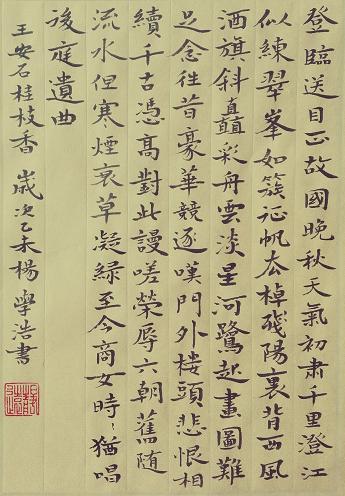 登臨送目正故國晚秋天氣初肅千里澄江
似練翠峯如簇征帆去棹殘陽裏背西風
酒旗斜矗彩舟雲淡星河鷺起畫圖難
足念往昔豪華競逐嘆門外楼頭悲恨相
續千古憑高對此謾嗟榮辱六朝舊隨
流水但寒煙衰草凝緑至今商女時〻猶唱
後庭遺曲
王安石桂枝香 歲次乙未楊學浩書